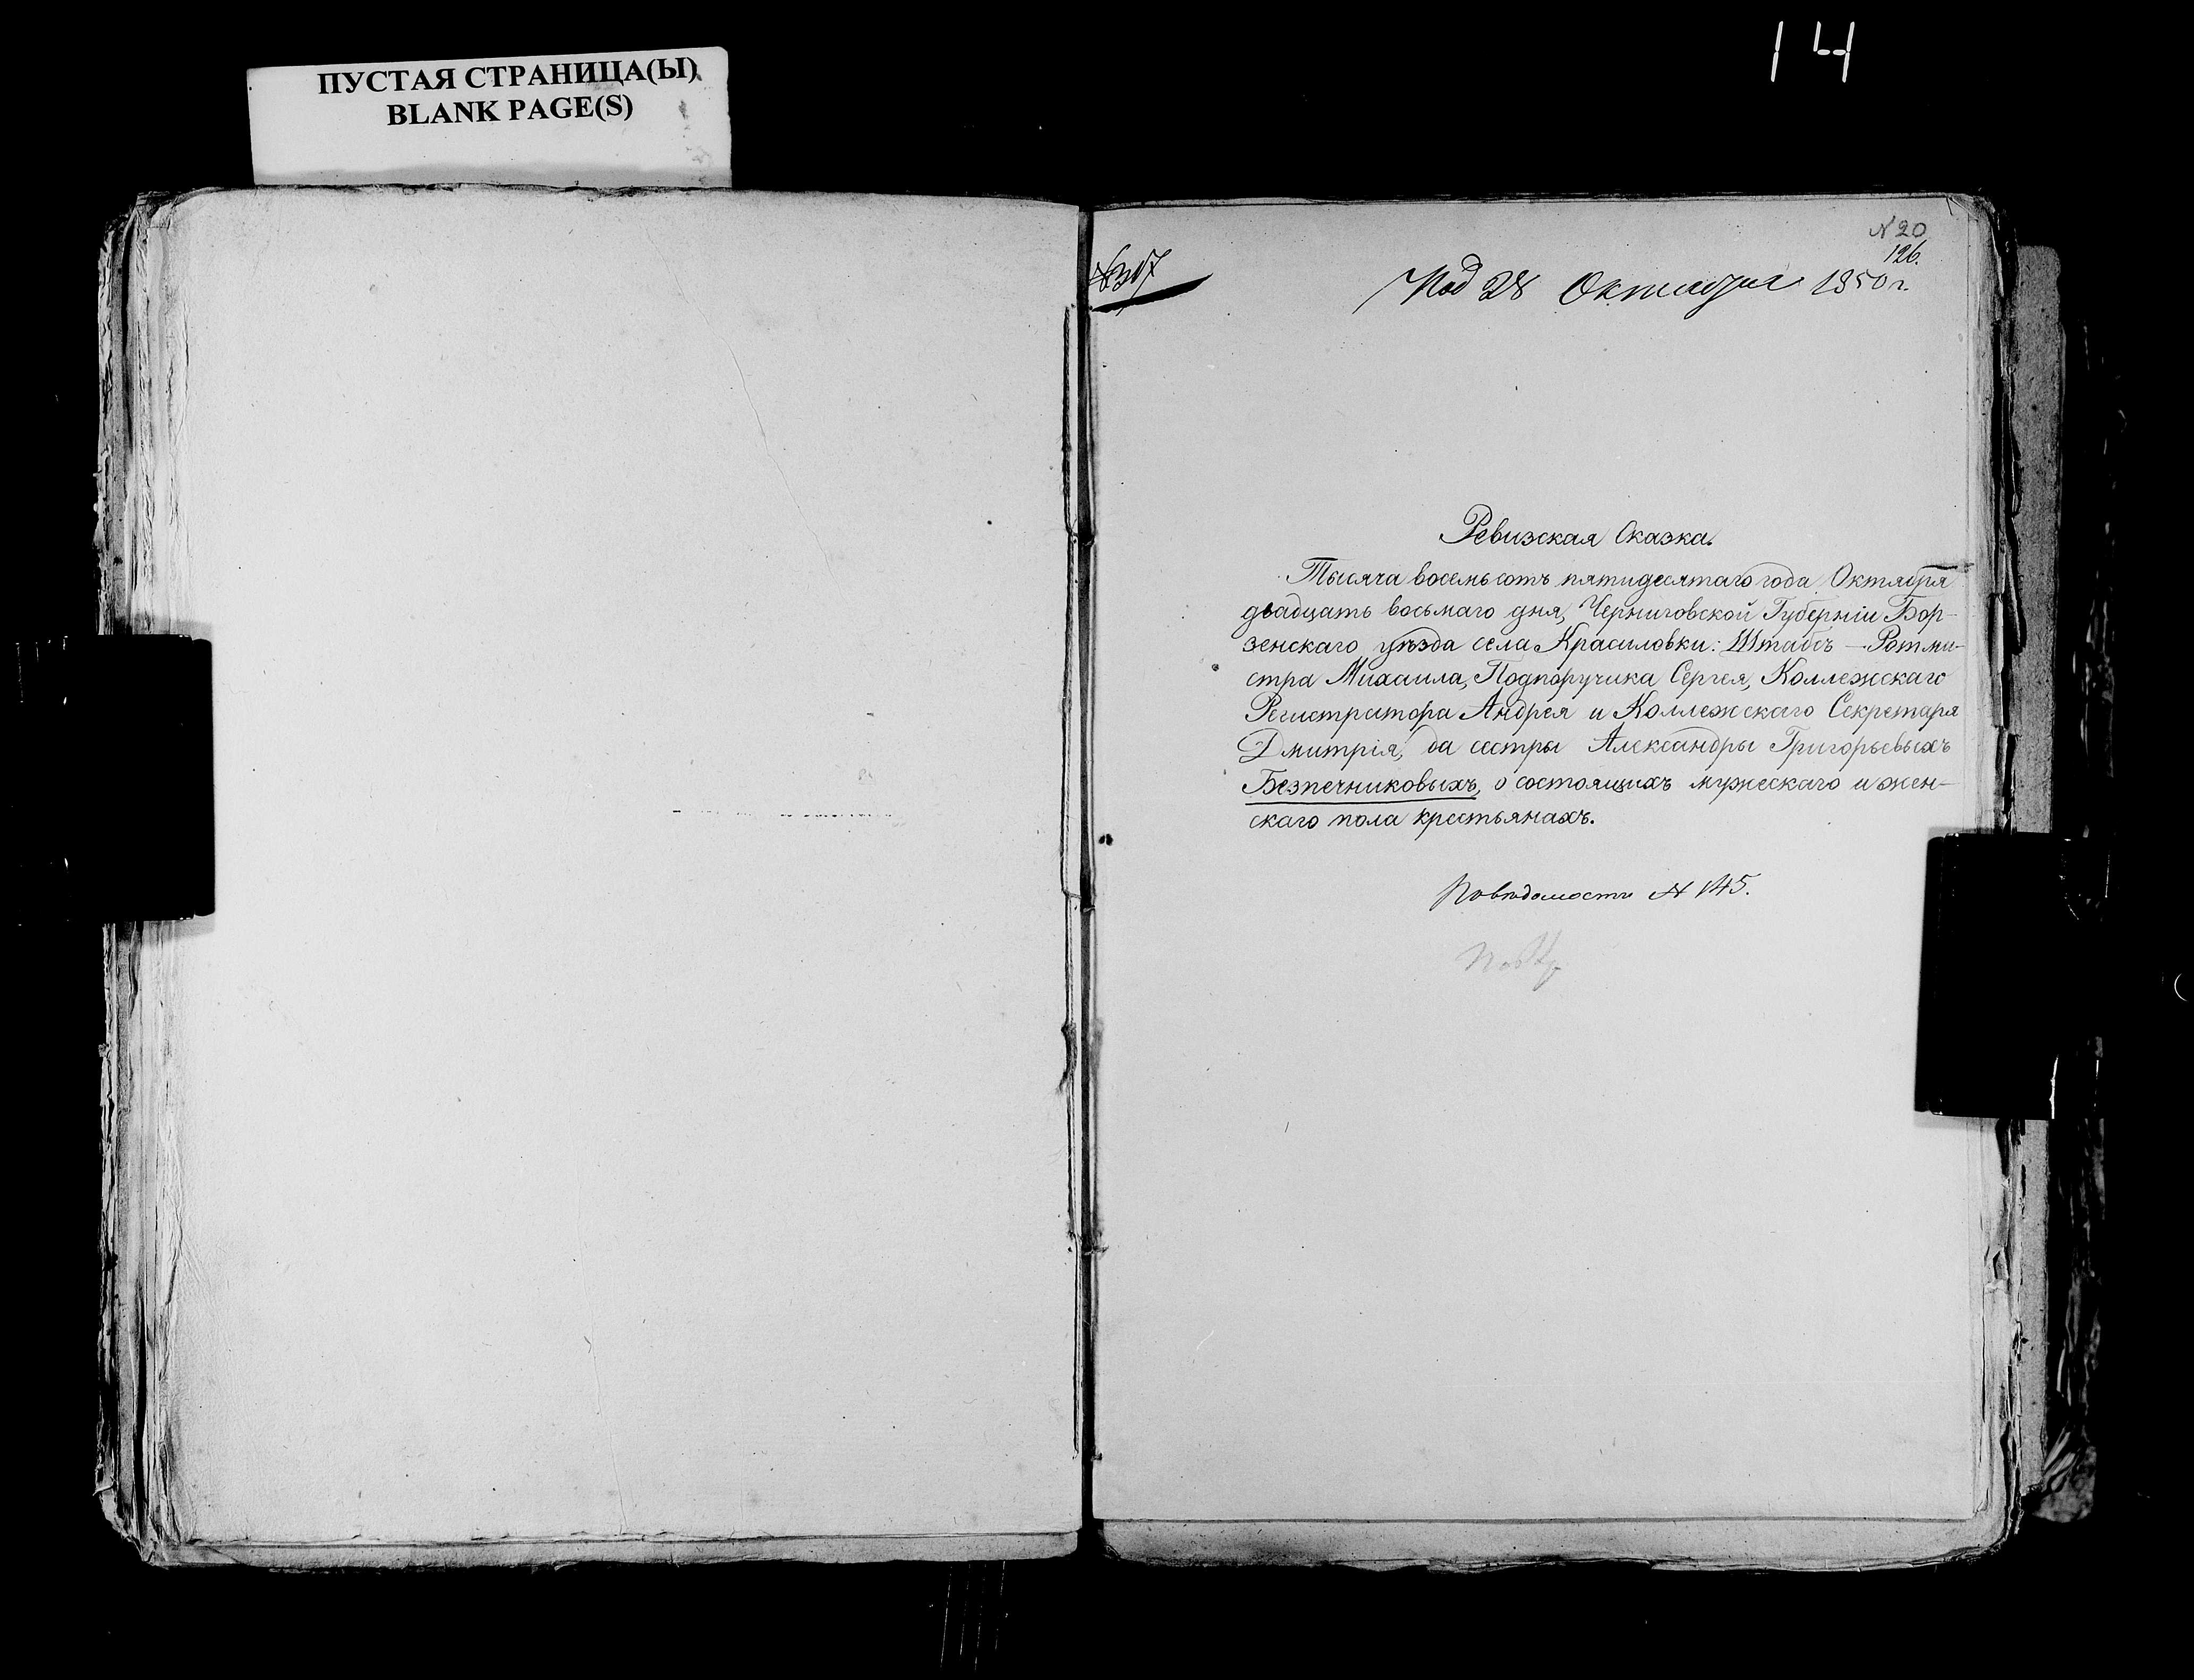 ПУСТАЯ СТРАНИЦА(Ы)
BLANK PAGE(S)
14
N 20
126.
Под 28 Октября 1850 г.
Ревизская Сказка.
Тысяча восемьсотъ пятидесятаго года Октября
двадцать восьмаго дня, Черниговской Губерніи Бор-
зенскаго уѣзда села Красиловки: Штабсъ-Ротми-
стра Михаила, Подпоручика Сергея, Коллежскаго
Регистратора Андрея и Коллежскаго Секретаря
Дмитрія, да сестры Александры Григорьевыхъ
Безпечниковыхъ, о состоящихъ мужескаго и жен-
скаго пола крестьянахъ.
По вѣдомости N 145.